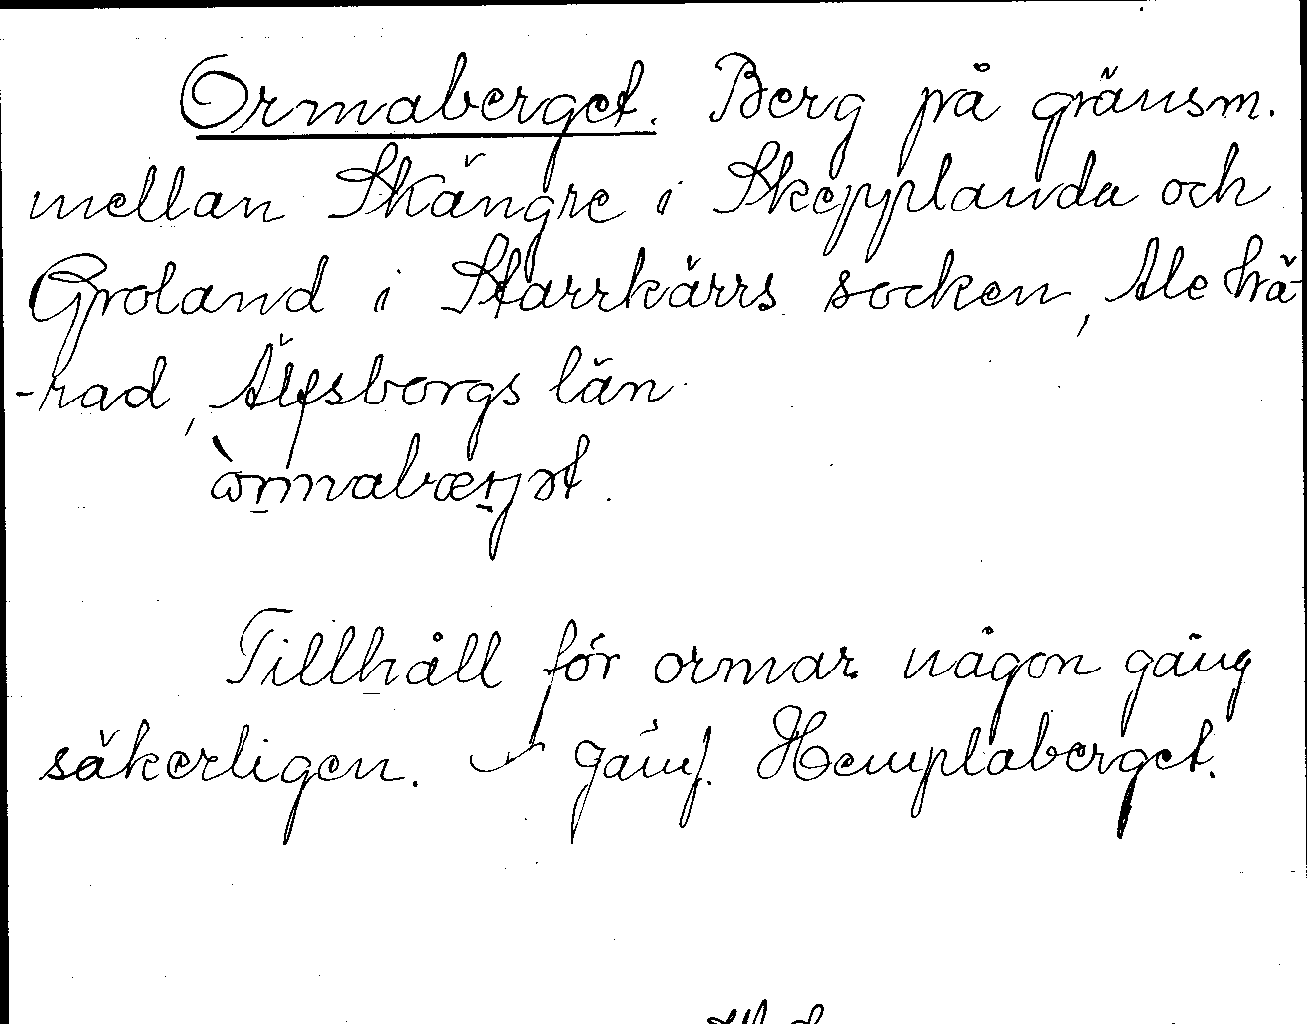 Ormaberget. Berg på gränsm.
mellan Skängre i Skepplanda och
Groland i Starrkärrs socken, Ale hä-
-rad, Älfsborgs län
òrmabærjət.
Tillhåll för ormar någon gång
säkerligen. Jämf. Hemplaberget.